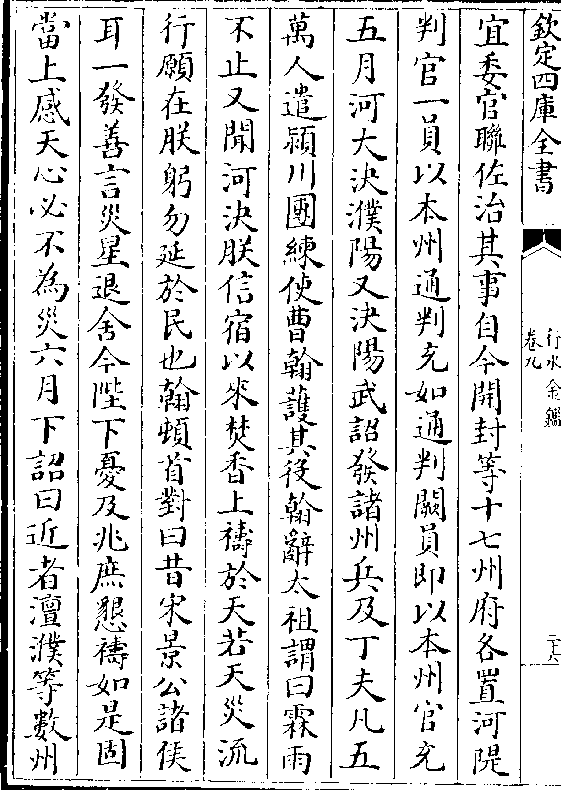 欽定四庫全書
行水金鑑
卷九
二十六
宜委官聯佐治其事自今開封等十七州府各置河隄
判官一員以本州通判充如通判闕員即以本州官充
五月河大決濮陽又決陽武詔發諸州兵及丁夫凡五
萬人遣潁川團練使曹翰䕶其役翰辭太祖謂曰霖雨
不止又聞河決朕信宿以來焚香上禱於天若天災流
行願在朕躬勿延於民也翰頓首對曰昔宋景公諸侯
耳一發善言災星退舍今陛下憂及兆庶懇禱如是固
當上感天心必不為災六月下詔曰近者澶濮等數州